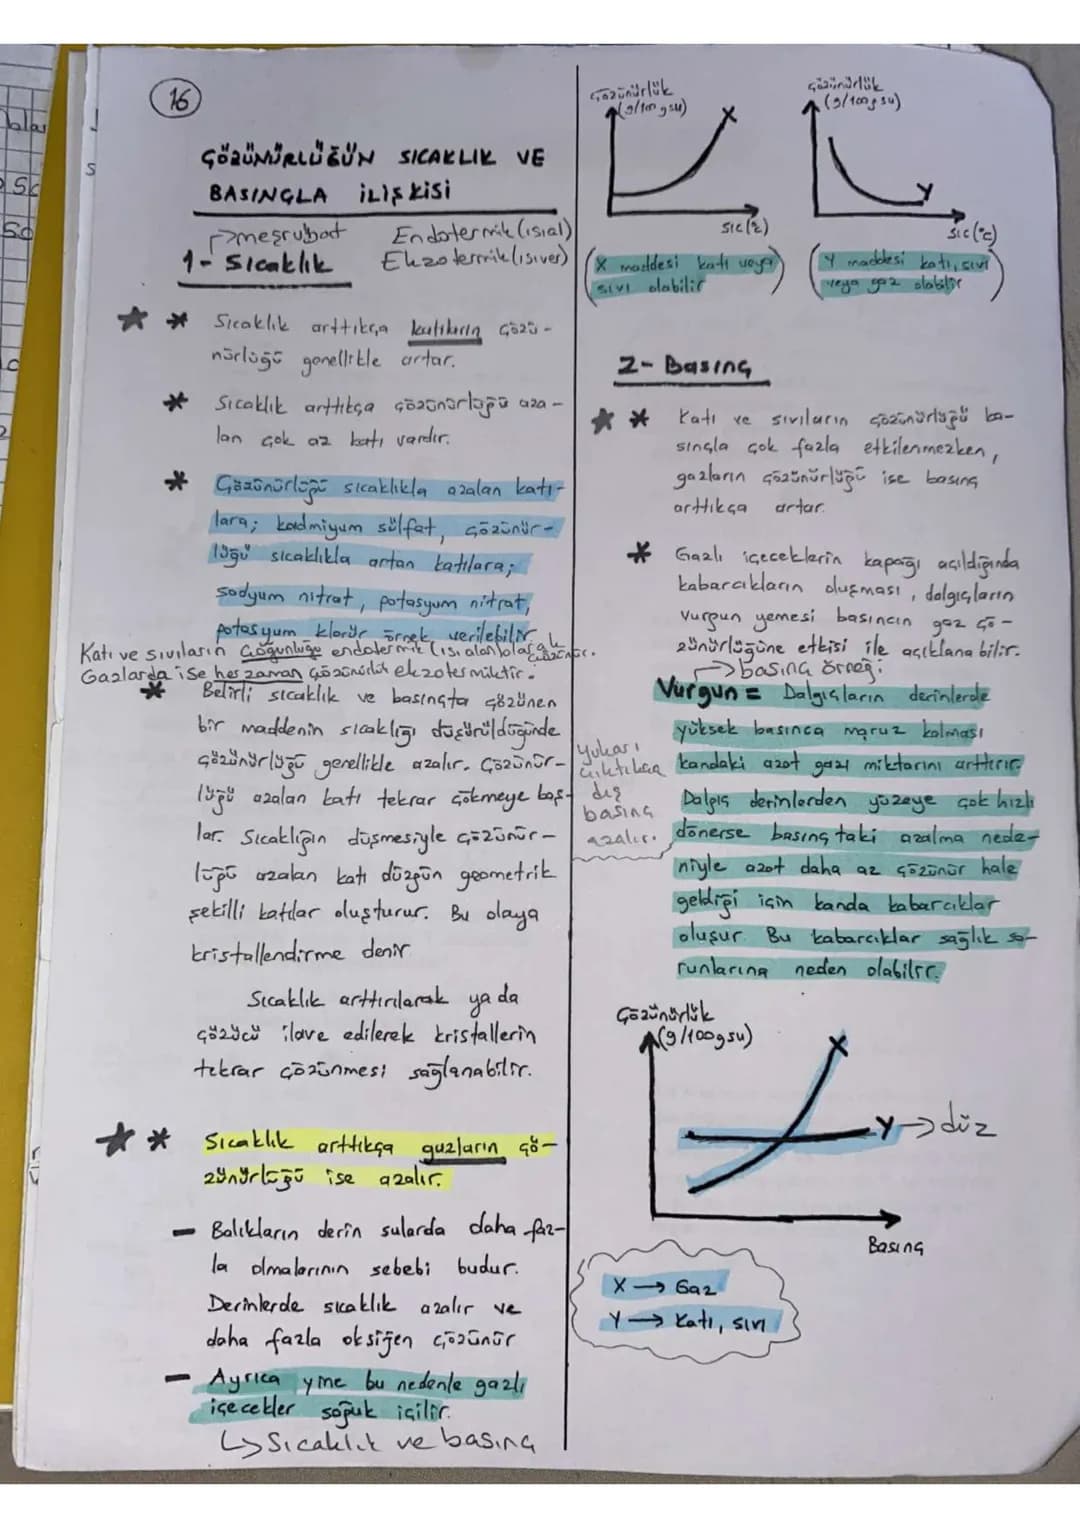 16
ÇÖZÜNÜRLÜĞÜN SICAKLIK VE
BASINÇLA İLİŞKİSİ
→meşrubat Endotermik (ısıal)
1- Sıcaklık Ekzotermik (ısıver)
★ * Sıcaklık arttıkça katıların çözü-
nürlüğü genellikle artar.
* Sıcaklık arttıkça çözünürlüğü aza-
lan çok az katı vardır.
* Çözünürlüğü sıcaklıkla azalan katı-
lara; kadmiyum sülfat, çözünür-
lüğü sıcaklıkla artan katılara;
sodyum nitrat, potasyum nitrat,
potasyum klorür örnek verilebilir.
Katı ve sıvıların çoğunluğu endotermik (ısı alan) olarak çözünür.
Gazlarda ise her zaman çözünürlük ekzotermiktir.
* Belirli sıcaklık ve basınçta çözünen
bir maddenin sıcaklığı düşürüldüğünde
çözünürlüğü genellikle azalır. Çözünür-
lüğü azalan katı tekrar çökmeye baş-
lar. Sıcaklığın düşmesiyle çözünür-
lüğü azalan katı düzgün geometrik
şekilli katılar oluşturur. Bu olaya
kristallendirme denir
Sıcaklık arttırılarak ya da
çözücü ilave edilerek kristallerin
tekrar çözünmesi sağlanabilir.
★ * Sıcaklık arttıkça gazların çö-
zünürlüğü ise azalır.
- Balıkların derin sularda daha faz-
la olmalarının sebebi budur.
Derinlerde sıcaklık azalır ve
daha fazla oksijen çözünür
- Ayrıca yine bu nedenle gazlı
içecekler soğuk içilir.
↳ Sıcaklık ve basınç
Çözünürlük
(g/100 g su)
X
Sıc (°c)
(X maddesi katı veya
sıvı olabilir)
Çözünürlük
(g/100g su)
Y
Sıc (°c)
(Y maddesi katı, sıvı
veya gaz olabilir)
2- Basınç
★ * Katı ve sıvıların çözünürlüğü ba-
sınçla çok fazla etkilenmezken,
gazların çözünürlüğü ise basınç
arttıkça artar.
* Gazlı içeceklerin kapağı açıldığında
kabarcıkların oluşması, dalgıçların
vurgun yemesi basıncın gaz çö-
zünürlüğüne etkisi ile açıklanabilir.
→basınç örneği
Vurgun = Dalgıçların derinlerde
yüksek basınca maruz kalması
kandaki azot gazı miktarını arttırır.
Dalgıç derinlerden yüzeye çok hızlı
dönerse basınçtaki azalma nede-
niyle azot daha az çözünür hale
geldiği için kanda kabarcıklar
oluşur. Bu kabarcıklar sağlık so-
runlarına neden olabilir.
yukarı
çıktıkça
dış
basınç
azalır.
Çözünürlük
(g/100gsu)
X
Y → düz
Basınç
X → Gaz
Y → Katı, sıvı